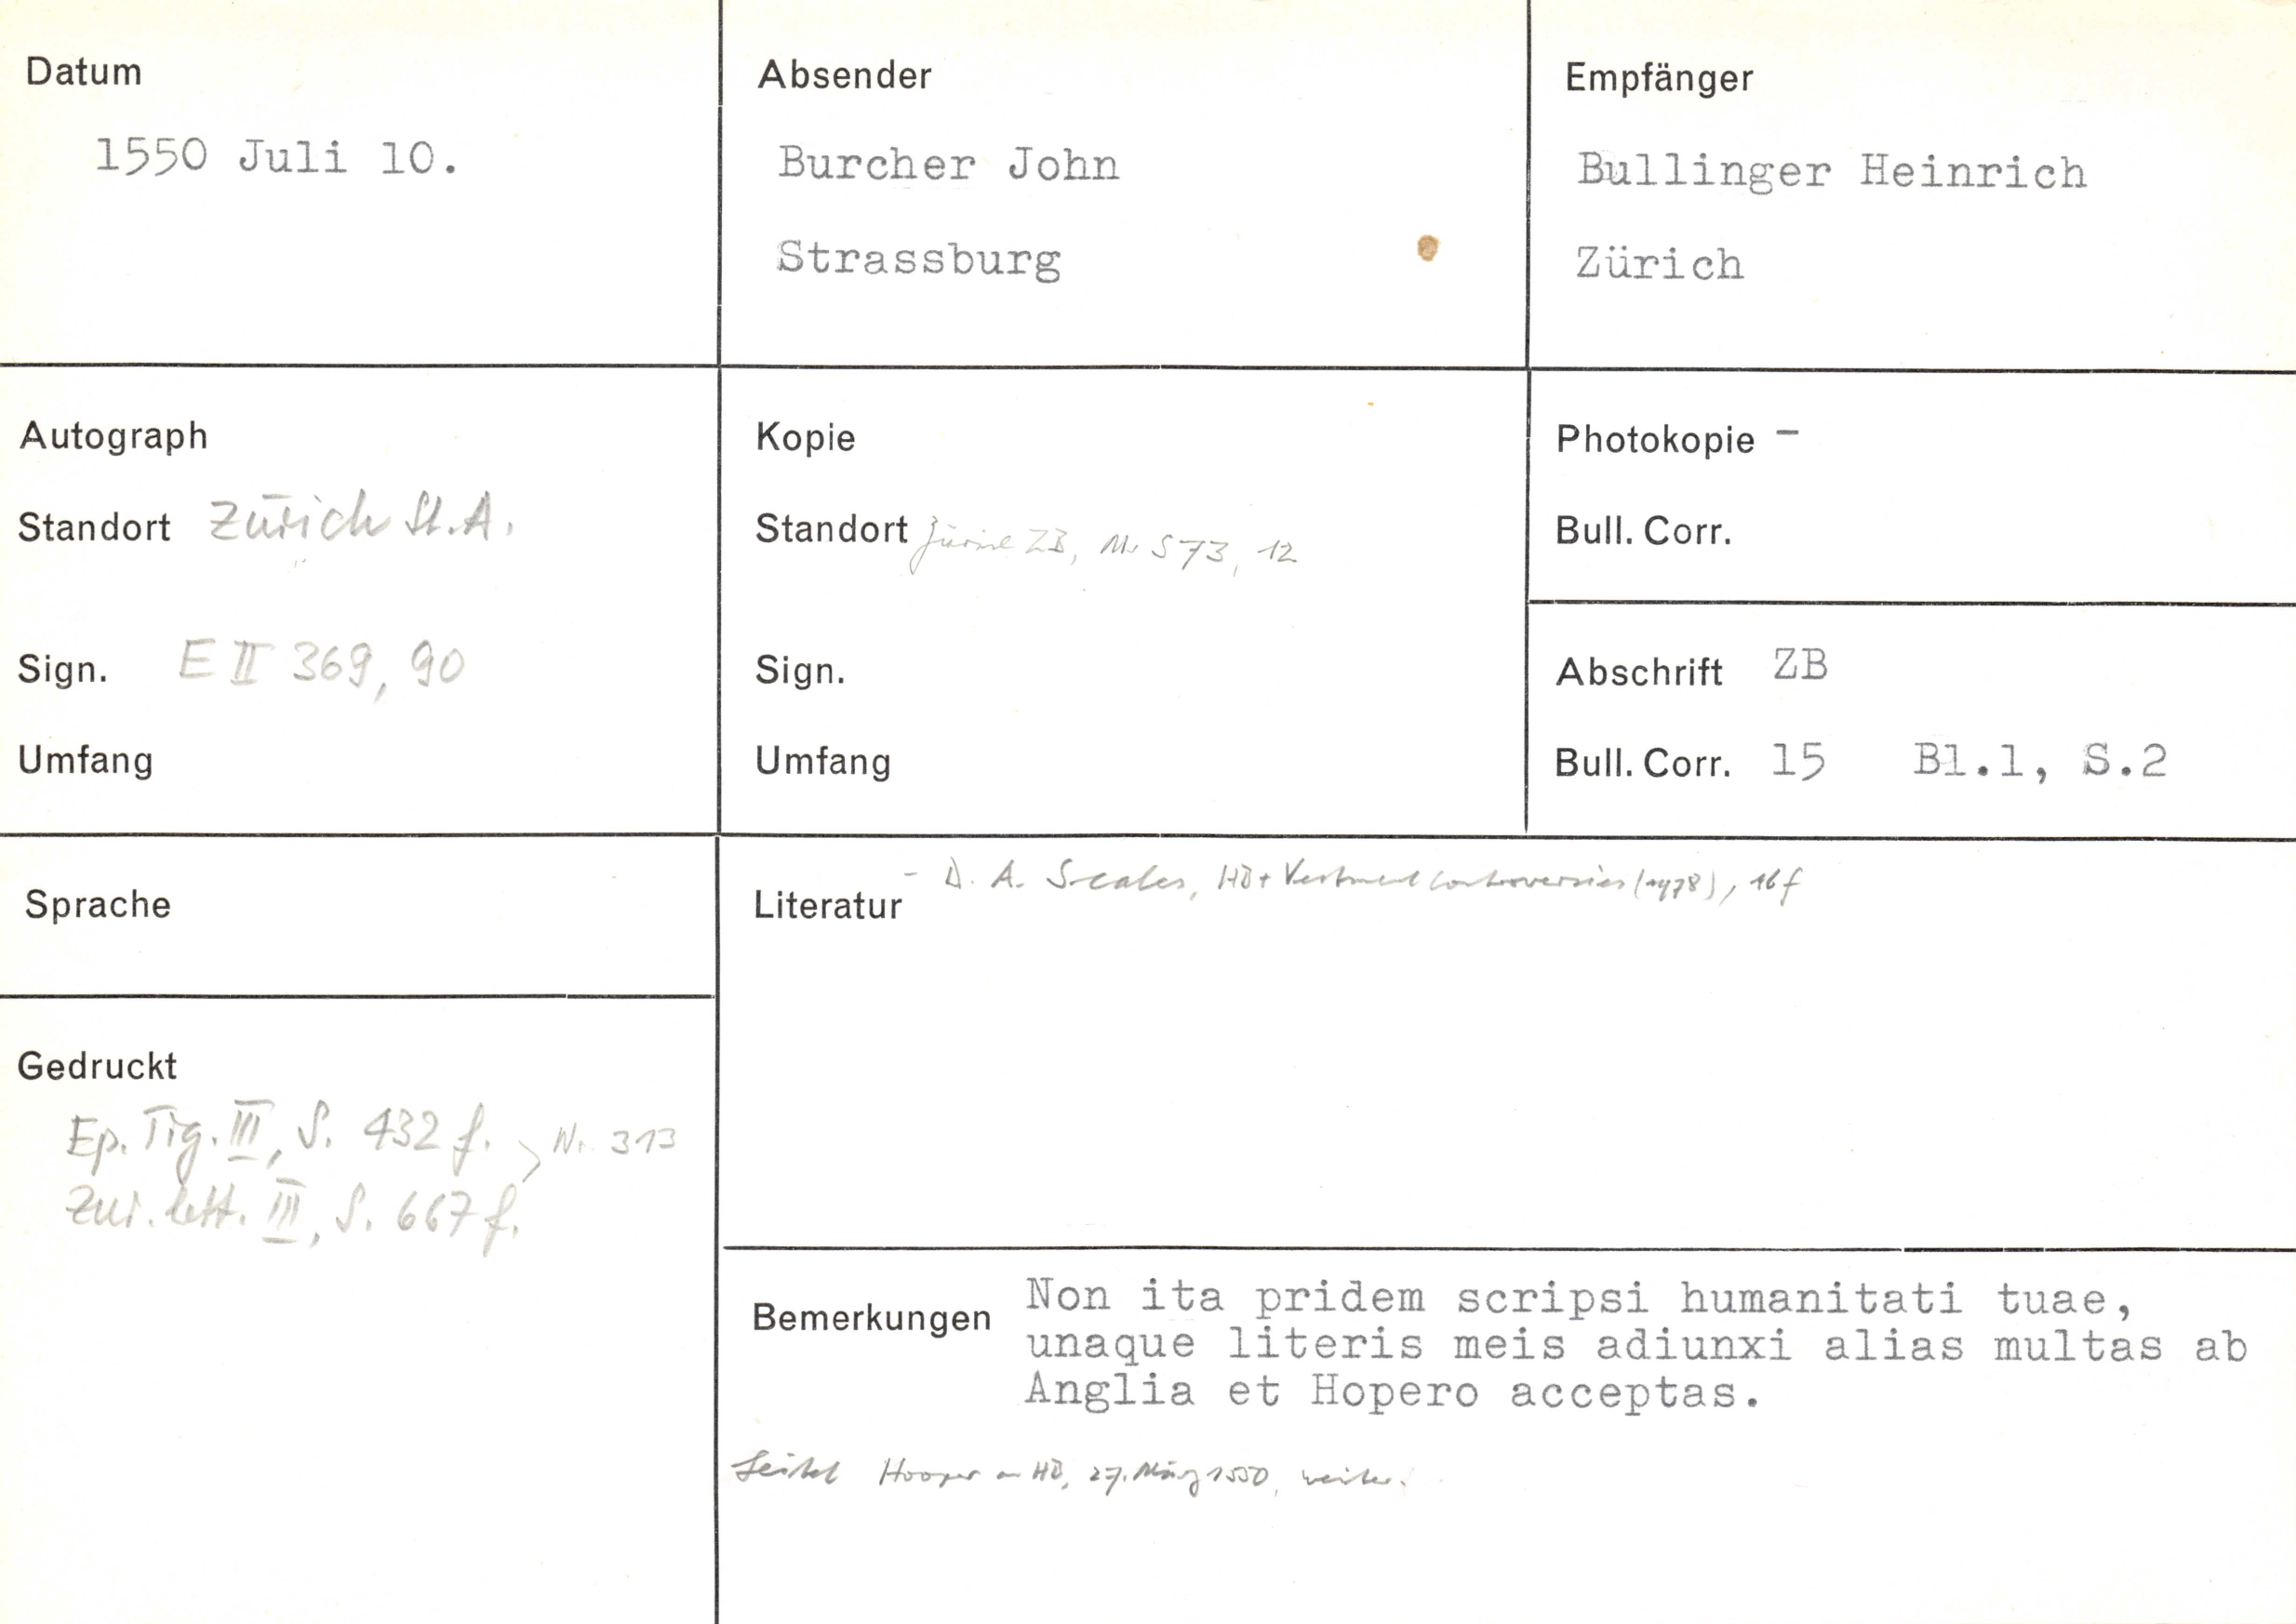 Datum
1550 Juli 10.
Absender
Burcher John
Strassburg
Empfänger
Bullinger Heinrich
Zürich
Autograph
Standort Zürich St.A.
Sign. E II 369, 90
Umfang
Kopie
Standort Zürich ZB, Ms S 73, 12
Sign.
Umfang
Photokopie -
Bull. Corr.
Abschrift ZB
Bull. Corr. 15 Bl.1, S.2
Sprache
Literatur - D. A. Scales, HB + Vestment controversies (1978), 16f
Gedruckt
Ep. Tig. III, S. 432 f. > Nr. 313
Zur. lett. III, S. 667 f.
Bemerkungen Non ita pridem scripsi humanitati tuae,
unaque literis meis adiunxi alias multas ab
Anglia et Hopero acceptas.
Hooper an HB, 27. März 1550, weiter.